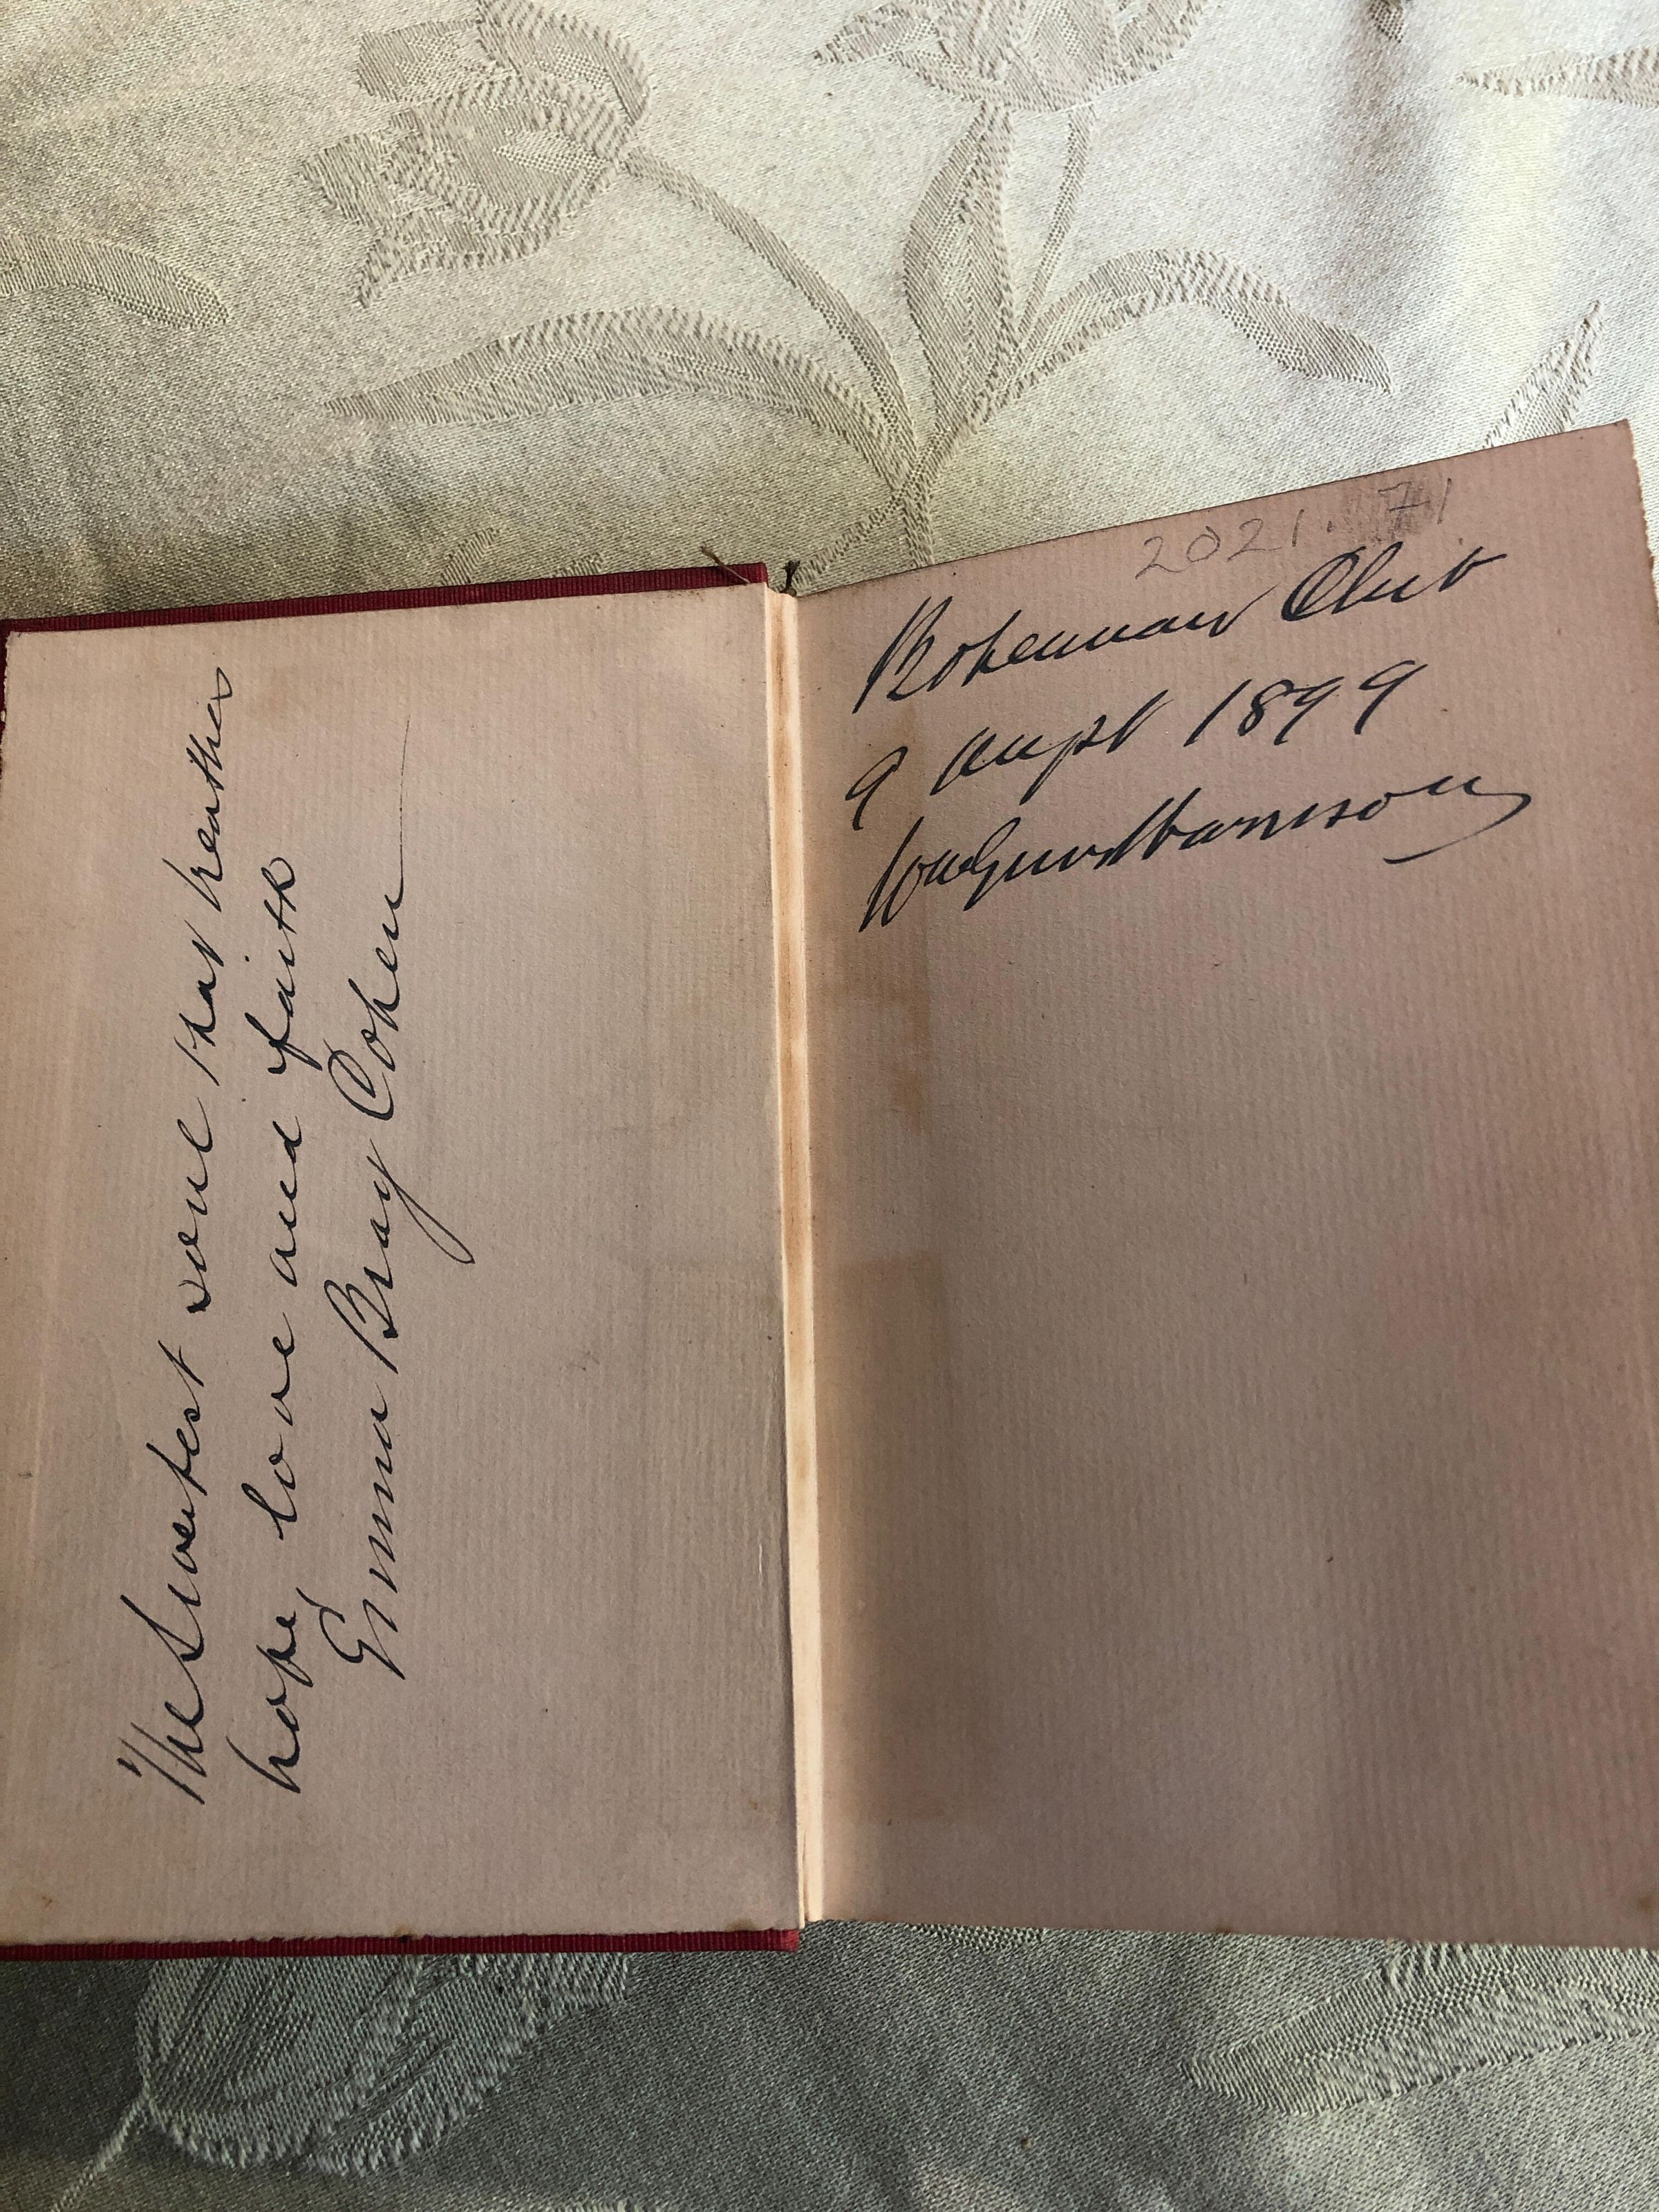 The Sweetest soul that breathes
hope, love and faith
Emma Bray Cohen
2021.71
Bohemian Club
9 Augst 1899
Wm Greer Harrison